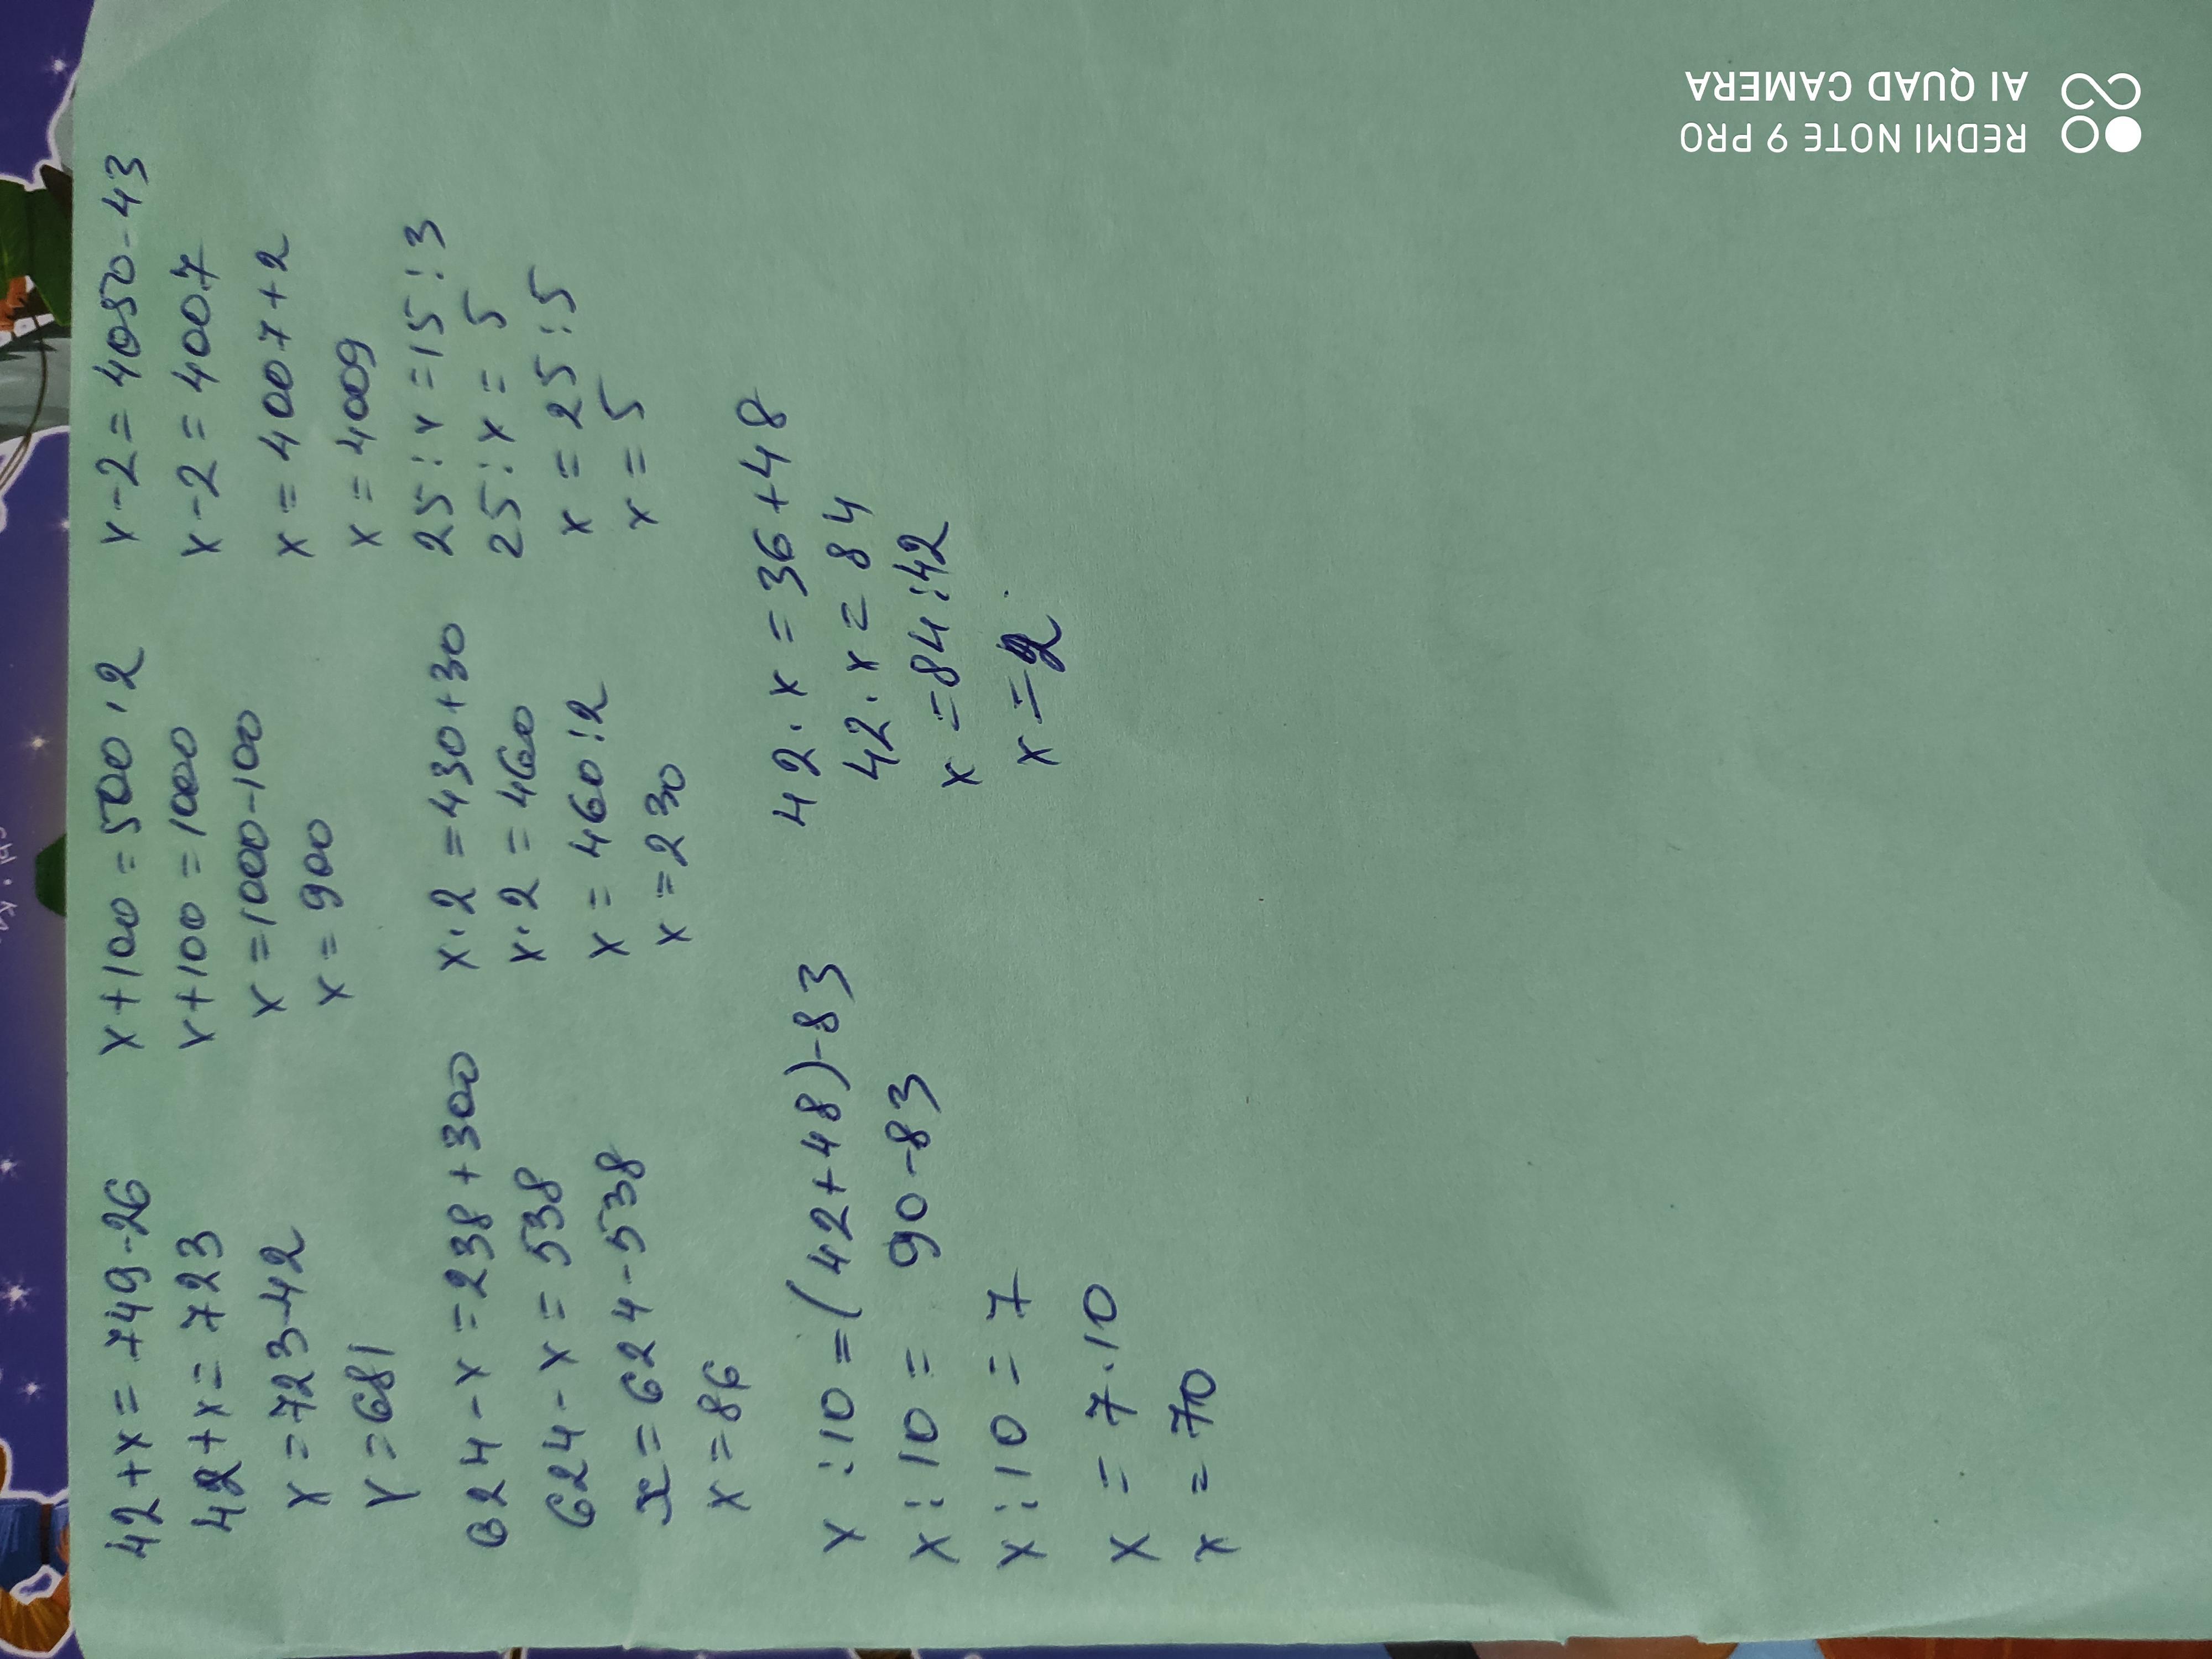 42+x=749-26
42+x=723
x=723-42
x=681
x+100=500·2
x+100=1000
x=1000-100
x=900
x-2=4050-43
x-2=4007
x=4007+2
x=4009
624-x=238+300
624-x=538
x=624-538
x=86
x·2=430+30
x·2=460
x=460:2
x=230
25:x=15:3
25:x=5
x=25:5
x=5
x:10=(42+48)-83
x:10=90-83
x:10=7
x=7·10
x=70
42·x=36+48
42·x=84
x=84:42
x=2
REDMI NOTE 9 PRO
AI QUAD CAMERA